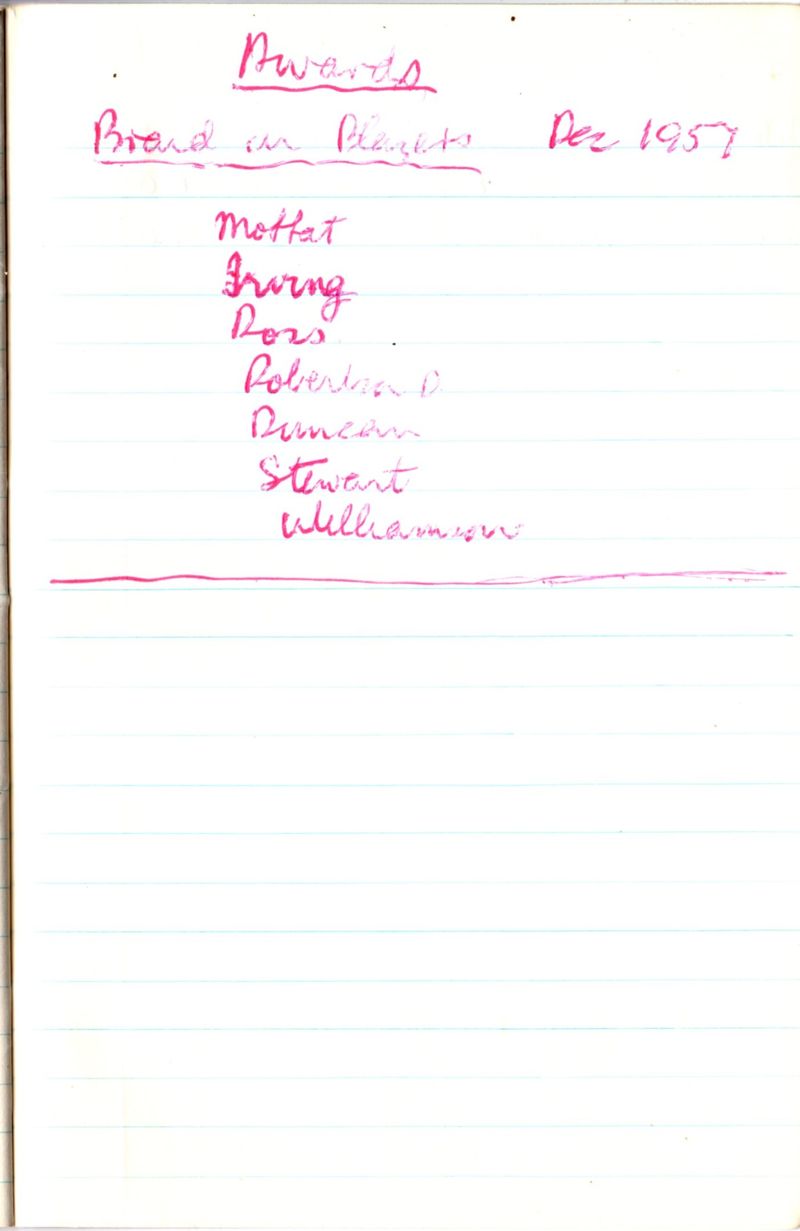 Awards
Braid on Blazers Dec 1957
Moffat
Irving
Ross
Robertson D
Duncan
Stewart
Williamson